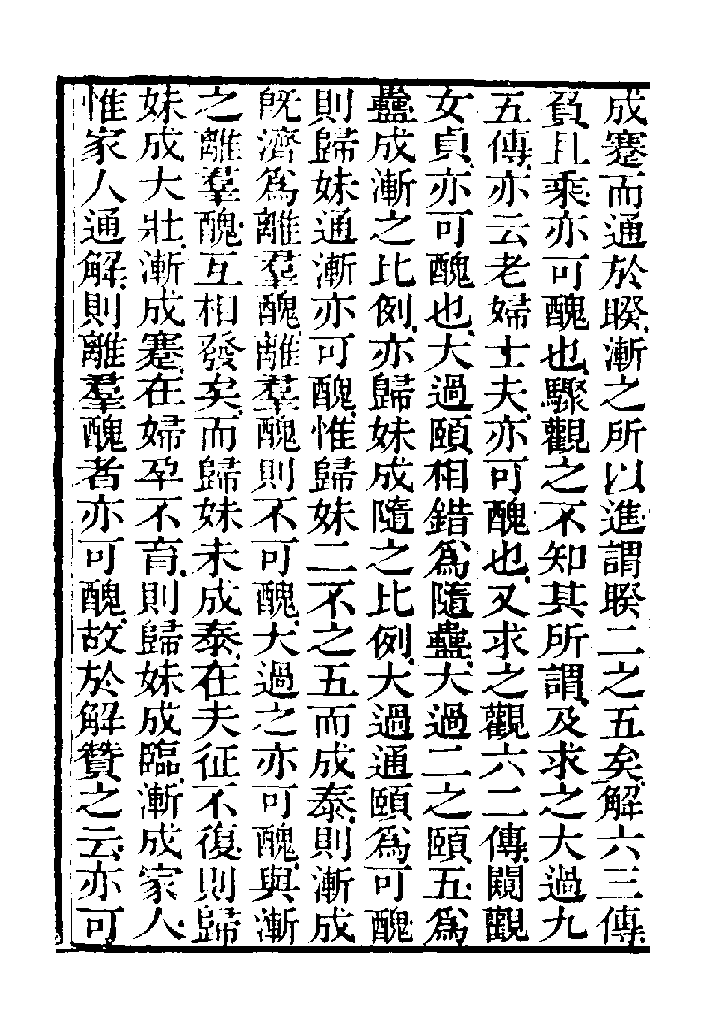 成蹇而通於睽漸之所以進謂睽二之五矣解六三傳
負且乘亦可醜也驟觀之不知其所謂及求之大過九
五傳亦云老婦士夫亦可醜也又求之觀六二傳闚觀
女貞亦可醜也大過頤相錯為隨蠱大過二之頤五為
蠱成漸之比例亦歸妹成隨之比例大過通頤為可醜
則歸妹通漸亦可醜惟歸妹二不之五而成泰則漸成
旣濟為離羣醜離羣醜則不可醜大過之亦可醜與漸
之離羣醜互相發矣而歸妹未成泰在夫征不復則歸
妹成大壯漸成蹇在婦孕不育則歸妹成臨漸成家人
惟家人通解則離羣醜者亦可醜故於解贊之云亦可